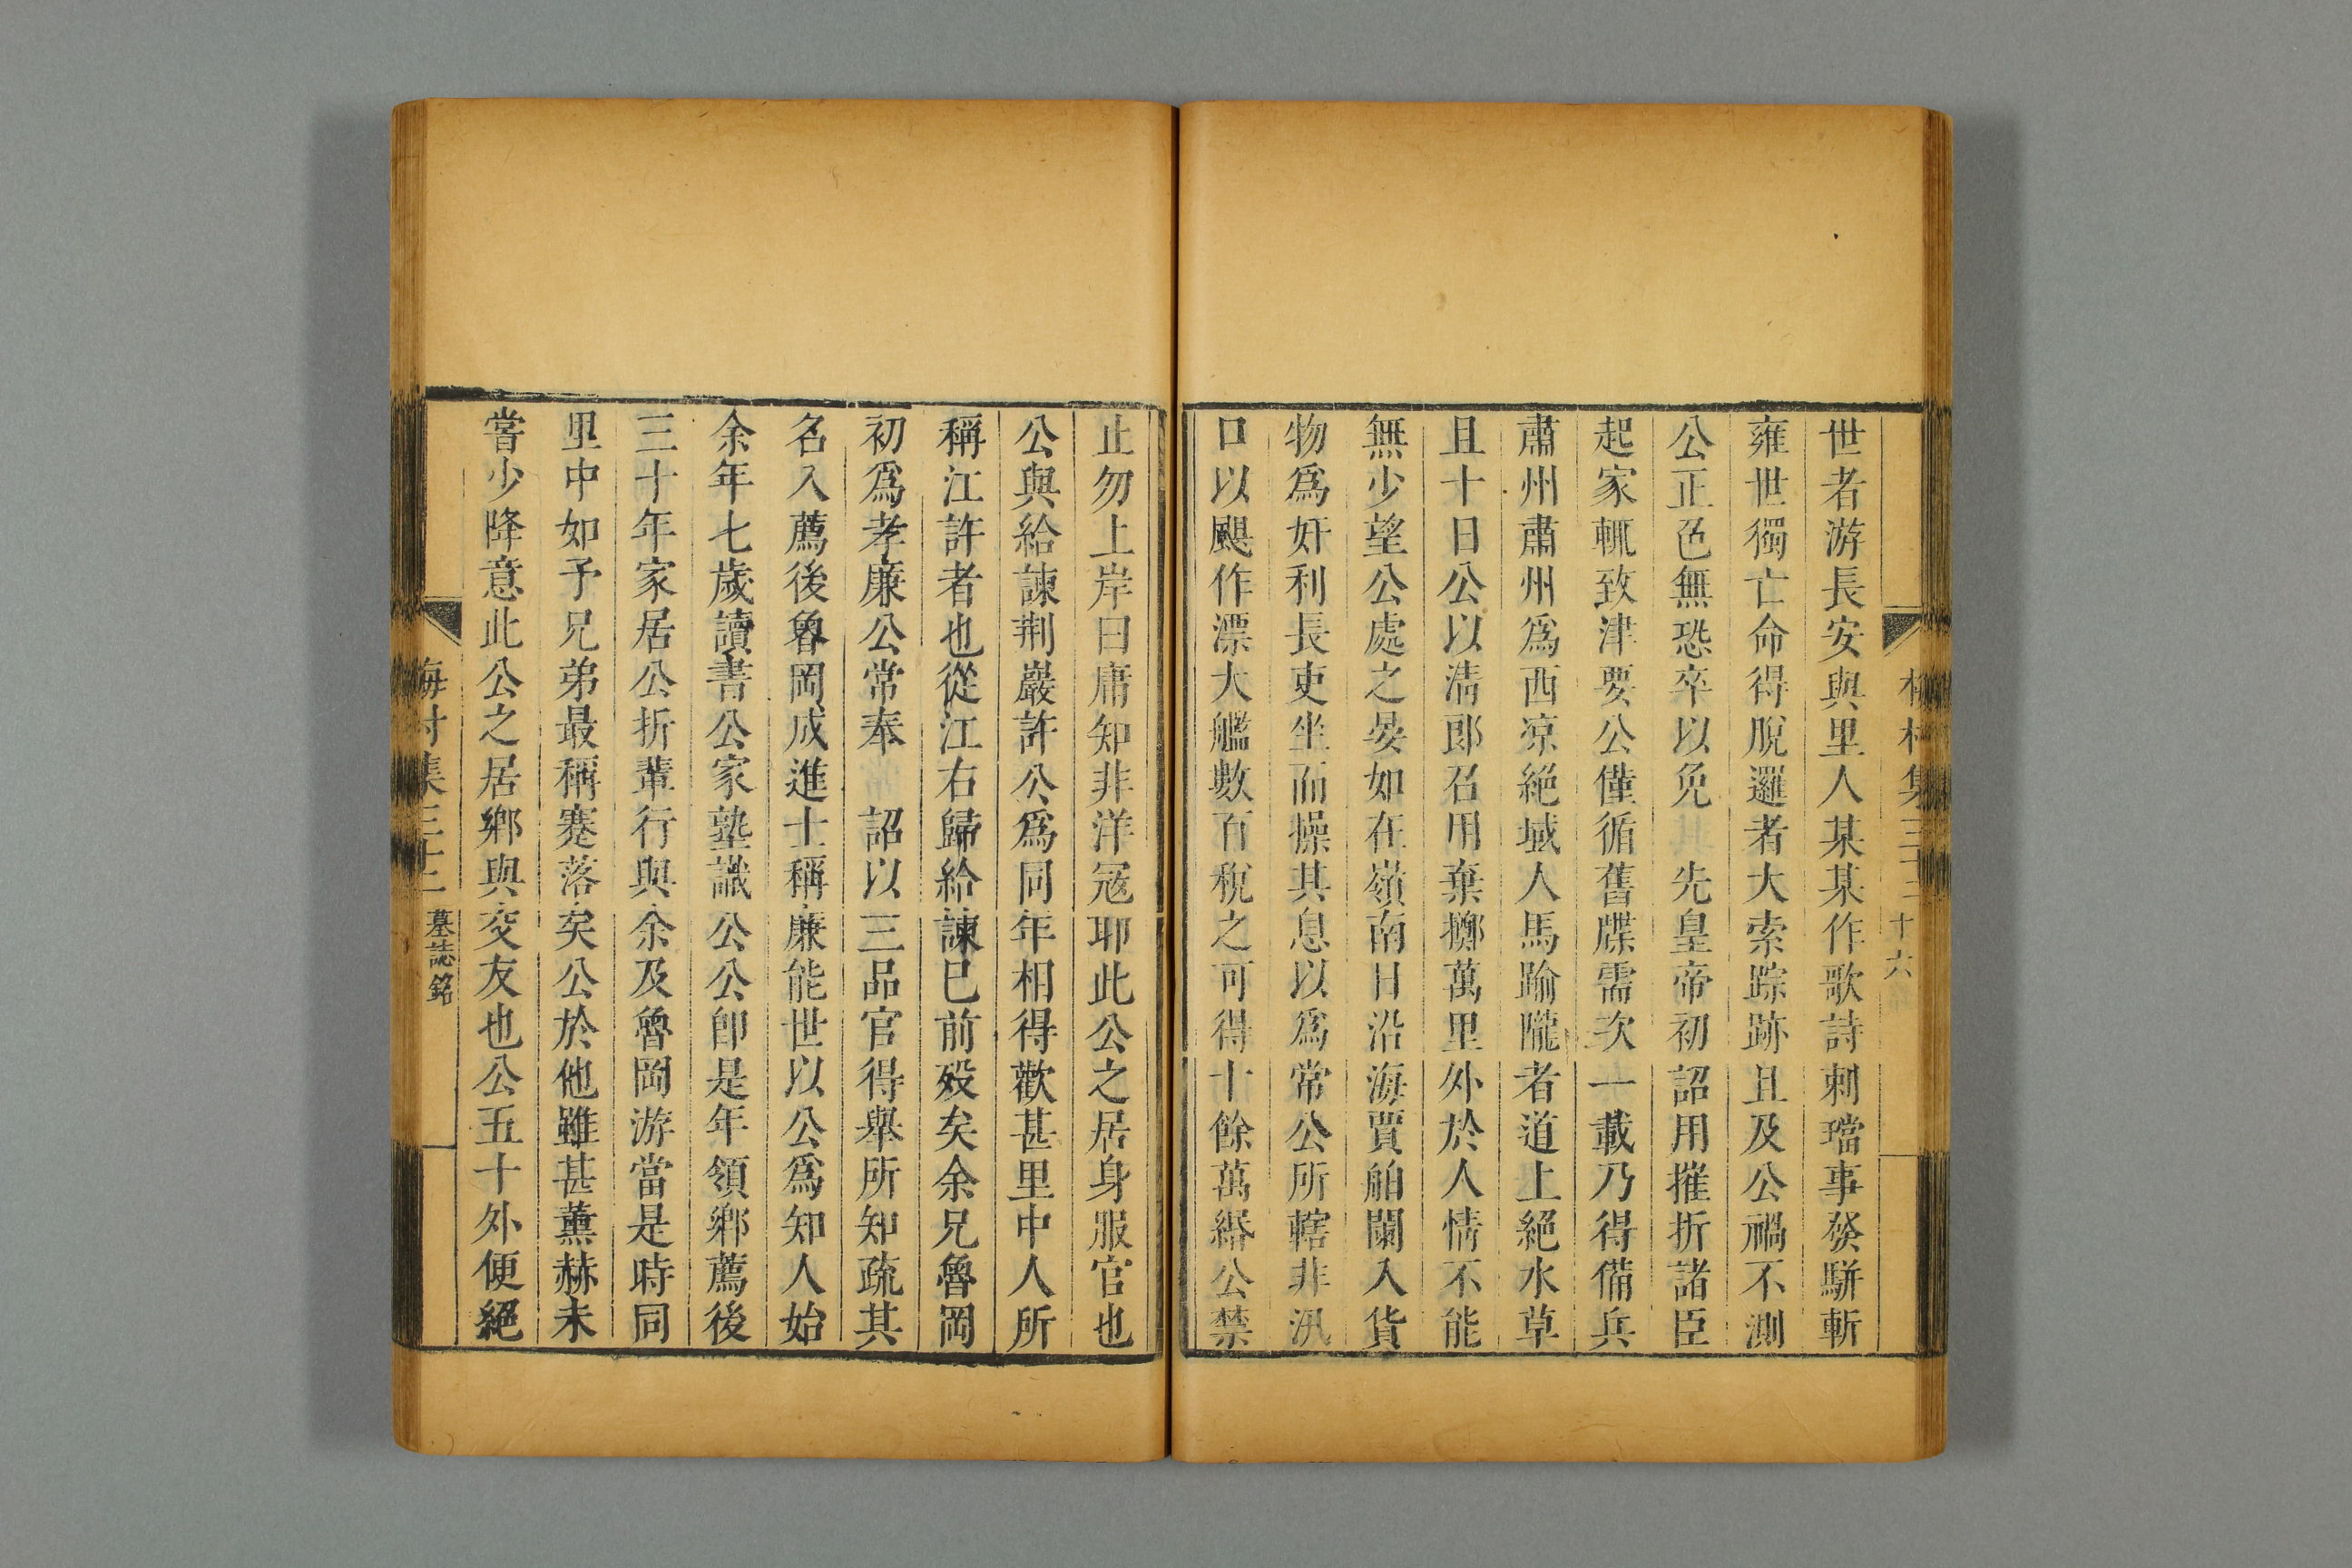 村集三十二 十六
世者游長安與里人某某作歌詩刺璫事發駢斬
雍世獨亡命得脫邏者大索踪跡且及公禍不測
公正色無恐卒以免　先皇帝初詔用摧折諸臣
起家輒致津要公僅循舊牒需次一載乃得備兵
肅州肅州爲西凉絕域人馬踰隴者道上絕水草
且十日公以淸郎召用棄擲萬里外於人情不能
無少望公處之晏如在嶺南日沿海賈舶闌入貨
物爲奸利長吏坐而操其息以爲常公所轄非汛
口以颶作漂大艦數百稅之可得十餘萬緡公禁
止勿上岸曰庸知非洋冦耶此公之居身服官也
公與給諫荆巖許公爲同年相得歡甚里中人所
稱江許者也從江右歸給諫已前歿矣余兄魯岡
初爲孝廉公常奉　詔以三品官得舉所知疏其
名入薦後魯岡成進士稱廉能世以公爲知人始
余年七歲讀書公家塾識公公卽是年領鄉薦後
三十年家居公折輩行與余及魯岡游當是時同
里中如予兄弟最稱蹇落矣公於他雖甚薰赫未
嘗少降意此公之居鄉與交友也公五十外便絕
村集三十二 墓誌銘